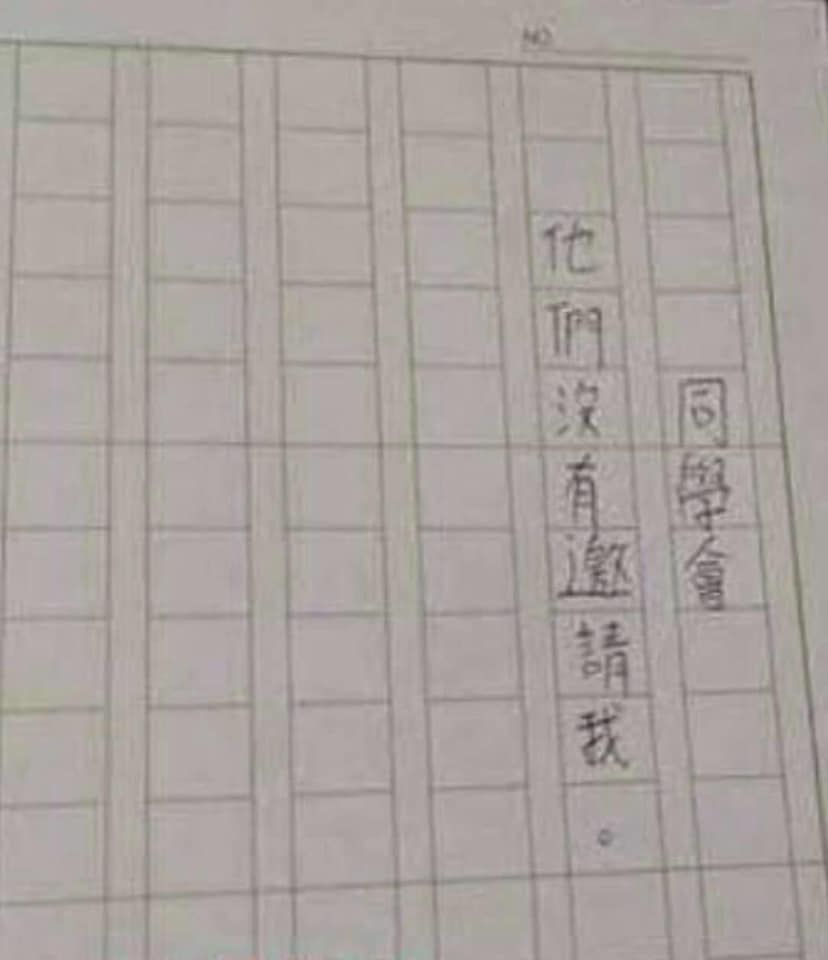 NO.
同學會
他們沒有邀請我。